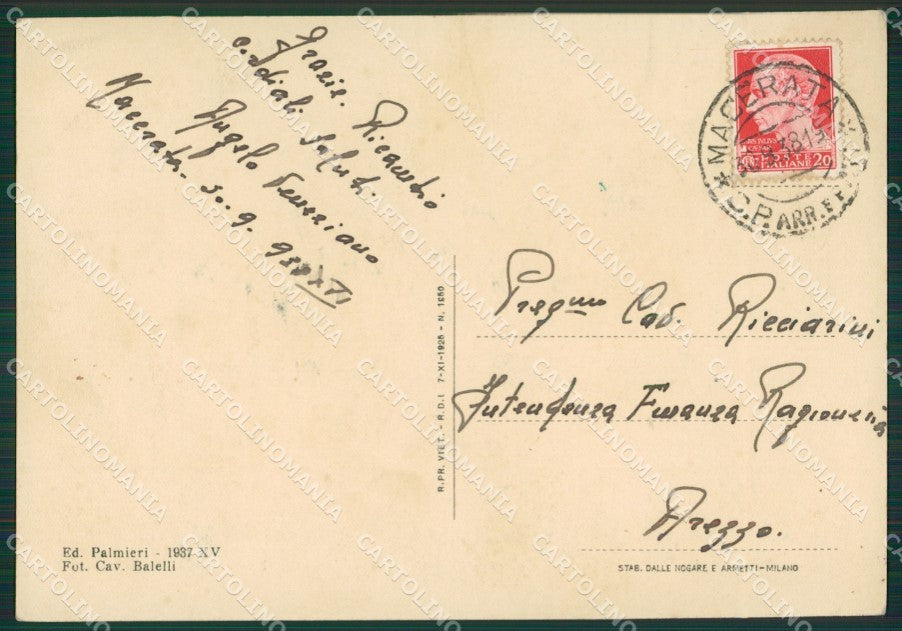 Grazie. Ricambio
cordiali saluti
Angelo
Macerata - 30.9.938 XVI
MACERATA
30.9.38.13
C.P. ARR. E
POSTE ITALIANE 20
Preg.mo Cav. Ricciarini
Intendenza Finanza Ragioneria
Arezzo.
R. PR. VIET. - R. D. L. 7-XI-1925 - N. 1950
Ed. Palmieri - 1937-XV
Fot. Cav. Balelli
STAB. DALLE NOGARE E ARMETTI - MILANO
CARTOLINOMANIA